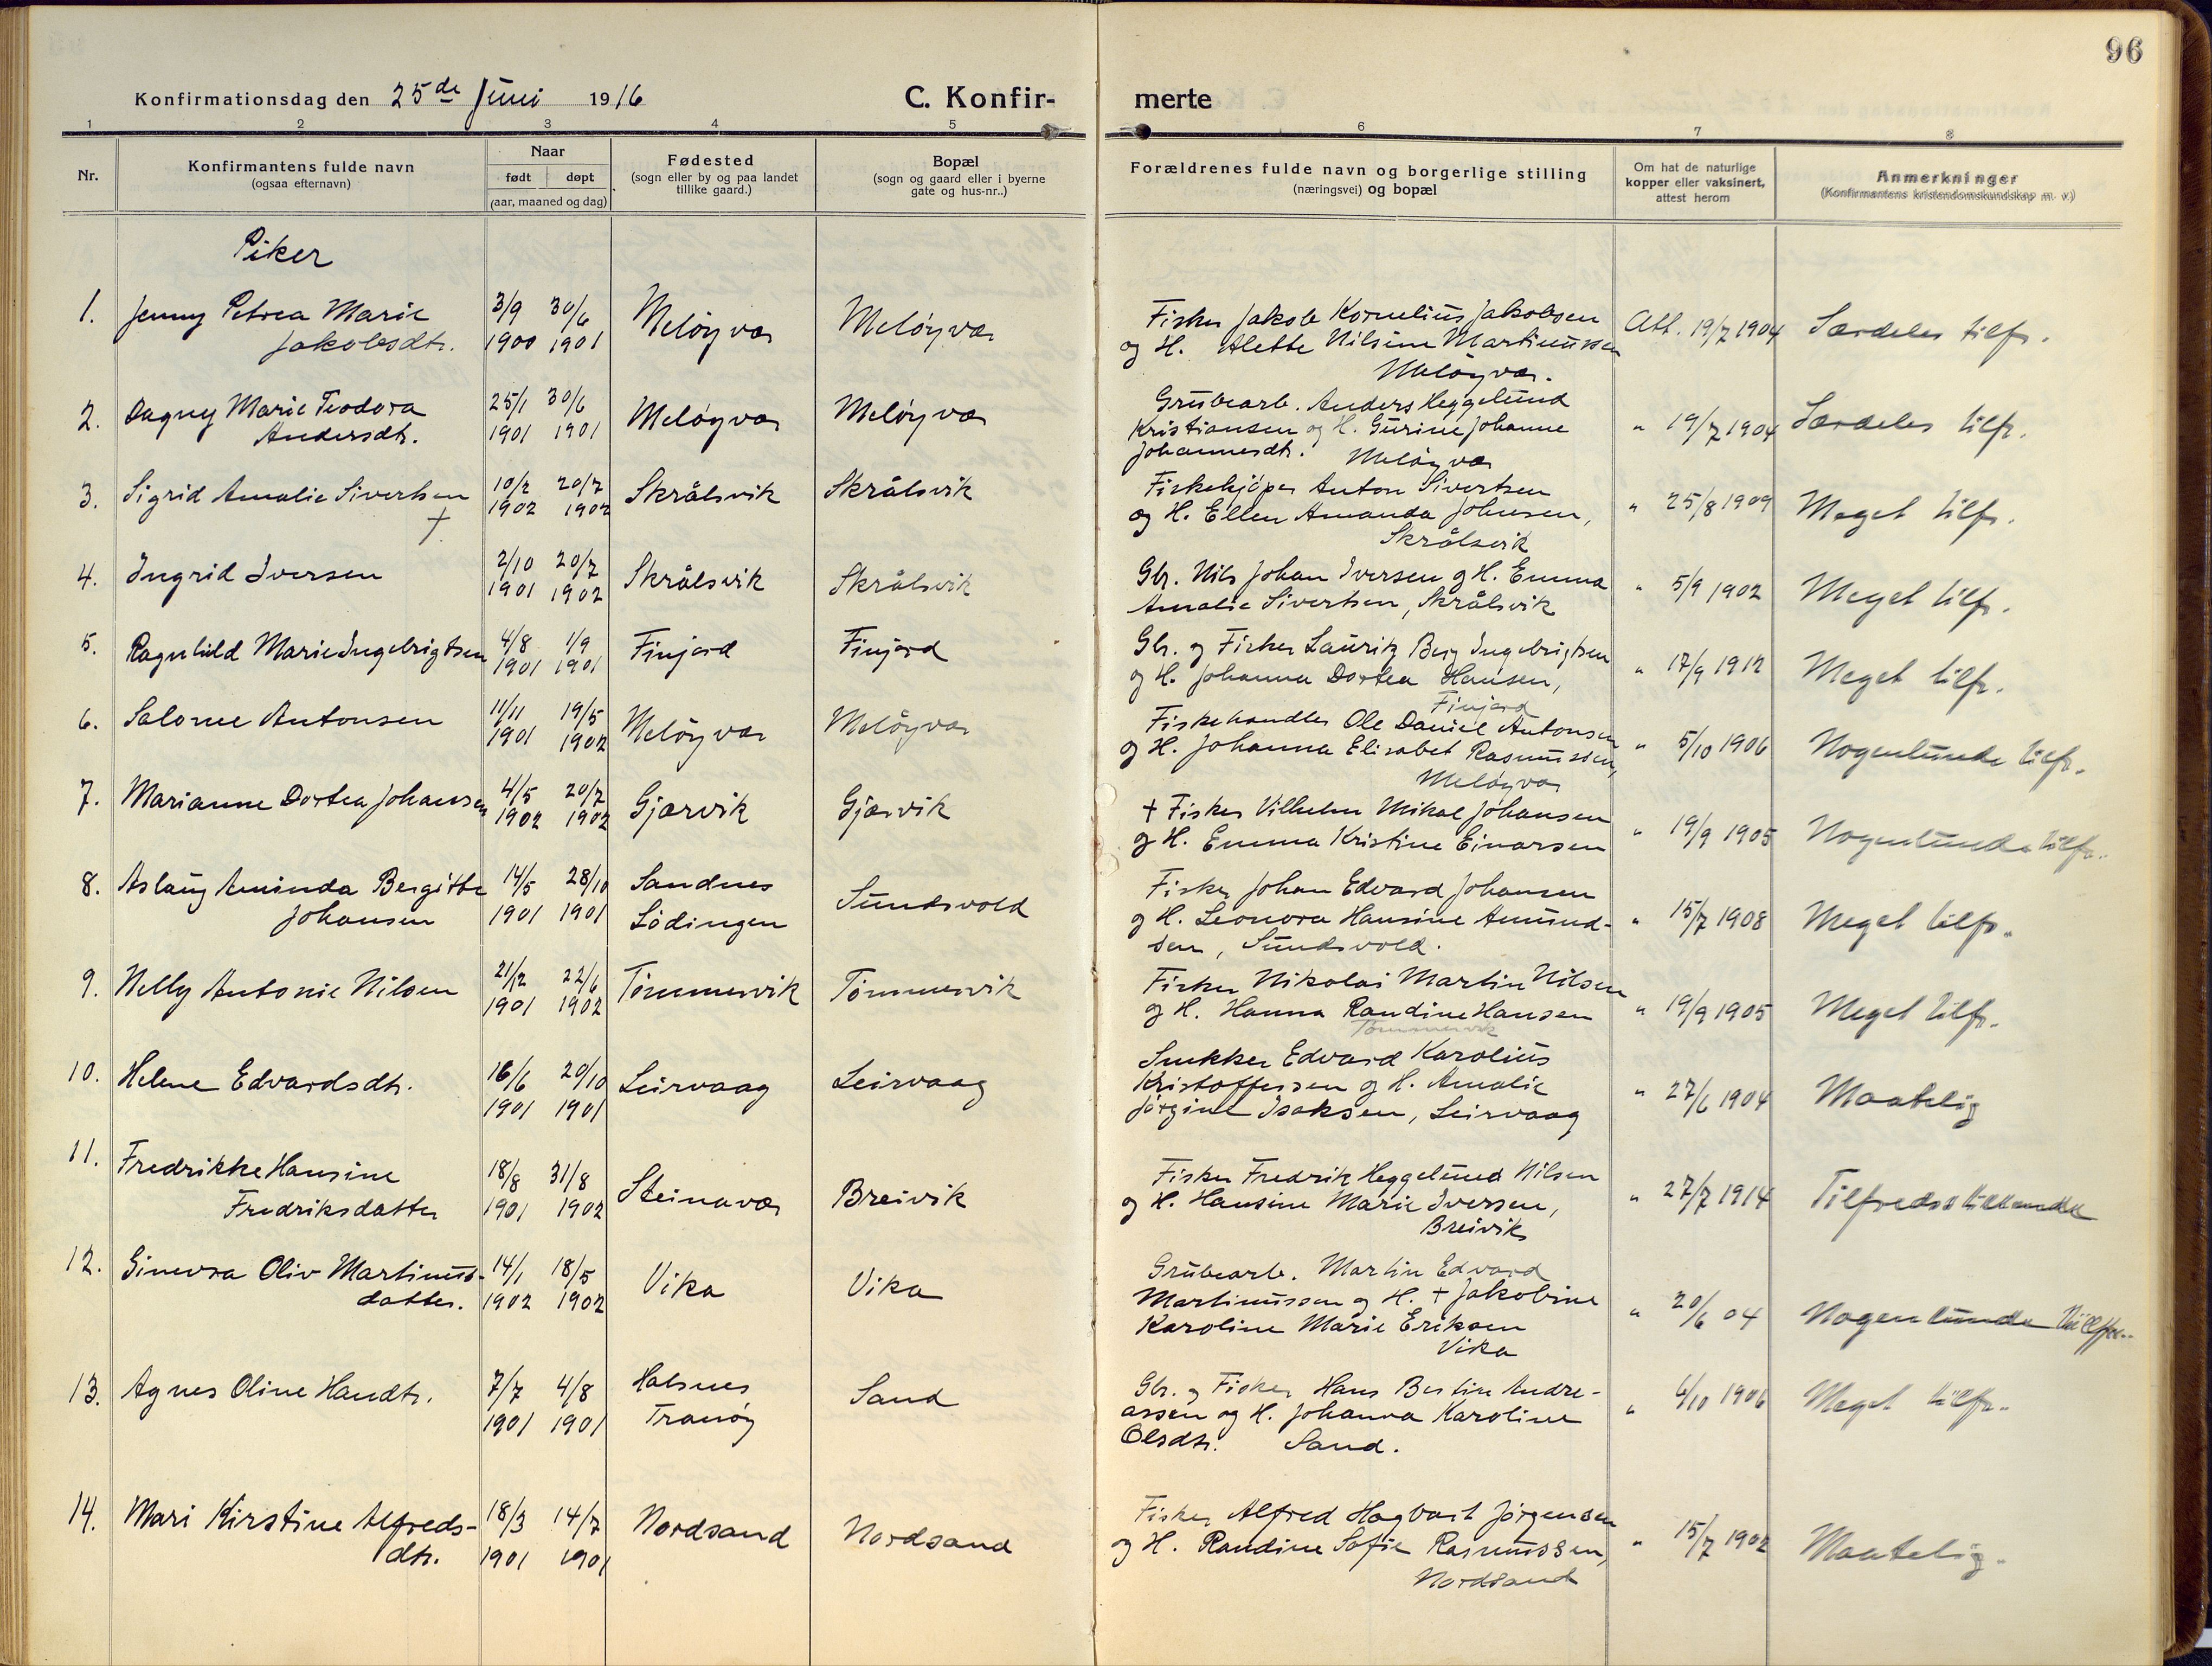 96
Konfirmationsdag den 25de Juni 1916
C. Konfir-
merte
1 2 3 4 5 6 7 8
Nr.
Konfirmantens fulde navn
(ogsaa efternavn)
Naar
født døpt
(aar, maaned og dag)
Fødested
(sogn eller by og paa landet
tillike gaard.)
Bopæl
(sogn og gaard eller i byerne
gate og hus-nr..)
Forældrenes fulde navn og borgerlige stilling
(næringsvei) og bopæl
Om hat de naturlige
kopper eller vaksinert,
attest herom
Anmerkninger
(Konfirmantens kristendomskundskap m. v.)
Piker
1. Jenny Petrea Marie
Jakobsdtr.
3/9 30/6
1900 1901
Meløyvær
Meløyvær
Fisker Jakob Kornelius Jakobsen
og H. Alette Nilsine Martinussen
Meløyvær.
Att. 19/7 1904
Særdeles tilfr.
2. Dagny Marie Teodora
Andersdtr.
25/1 30/6
1901 1901
Meløyvær
Meløyvær
Grubearb. Anders Heggelund
Kristiansen og H. Gurine Johanne
Johannesdtr. Meløyvær
" 19/7 1904
Særdeles tilfr.
3. Sigrid Amalie Sivertsen
†.
10/2 20/7
1902 1902
Skrålsvik
Skrålsvik
Fiskekjøper Anton Sivertsen
og H. Ellen Amanda Johnsen,
Skrålsvik
" 25/8 1909
Meget tilfr.
4. Ingrid Iversen
2/10 20/7
1901 1902
Skrålsvik
Skrålsvik
Gbr. Nils Johan Iversen og H. Emma
Amalie Sivertsen, Skrålsvik
" 5/9 1902
Meget tilfr.
5. Ragnhild Marie Ingebrigtsen
4/8 1/9
1901 1901
Finjord
Finjord
Gbr. og Fisker Lauritz Berg Ingebrigtsen
og H. Johanna Dortea Hansen,
Finjord
" 17/9 1912
Meget tilfr.
6. Salome Antonsen
11/11 19/5
1901 1902
Meløyvær
Meløyvær
Fiskehandler Ole Daniel Antonsen
og H. Johanna Elisabet Rasmussen,
Meløyvær
" 5/10 1906
Nogenlunde tilfr.
7. Marianne Dortea Johansen
4/5 20/7
1902 1902
Gjærvik
Gjærvik
† Fisker Vilhelm Mikal Johansen
og H. Emma Kristine Einarsen
" 19/9 1905
Nogenlunde tilfr.
8. Aslaug Aminda Bergitte
Johansen
14/5 28/10
1901 1901
Sandnes
Lödingen
Sundsvold
Fisker Johan Edvard Johansen
og H. Leonora Hansine Amund-
sen, Sundsvold.
" 15/7 1908
Meget tilfr.
9. Nelly Antonie Nilsen
21/12 22/6
1901 1902
Tömmervik
Tömmervik
Fisker Nikolai Martin Nilsen
og H. Hanna Randine Hansen
Tömmervik
" 19/9 1905
Meget tilfr.
10. Helene Edvardsdtr.
16/6 20/10
1901 1901
Leirvaag
Leirvaag
Snekker Edvard Karolius
Kristoffersen og H. Amalie
Jörgine Isaksen, Leirvaag
" 27/6 1904
Maatelig
11. Fredrikke Hansine
Fredriksdatter
18/8 31/8
1901 1902
Steinavær
Breivik
Fisker Fredrik Heggelund Nilsen
og H. Hansine Marie Iversen,
Breivik
" 27/7 1914
Tilfredsstillende
12. Ginevra Oliv Martinus-
datter.
14/1 18/5
1902 1902
Vika
Vika
Grubearb. Martin Edvard
Martinussen og H. † Jakobine
Karoline Marie Eriksen
Vika
" 20/6 04
Nogenlunde tilfr.
13. Agnes Oline Handtr.
7/7 4/8
1901 1901
Halsnes
Tranöy
Sand
Gbr. og Fisker Hans Bertin Andre-
assen og H. Johanna Karoline
Olsdtr. Sand.
" 6/10 1906
Meget tilfr.
14. Mari Kirstine Alfreds-
dtr.
18/3 14/7
1901 1901
Nordsand
Nordsand
Fisker Alfred Hagbart Jörgensen
og H. Randine Sofie Rasmussen,
Nordsand
" 15/7 1902
Maatelig.